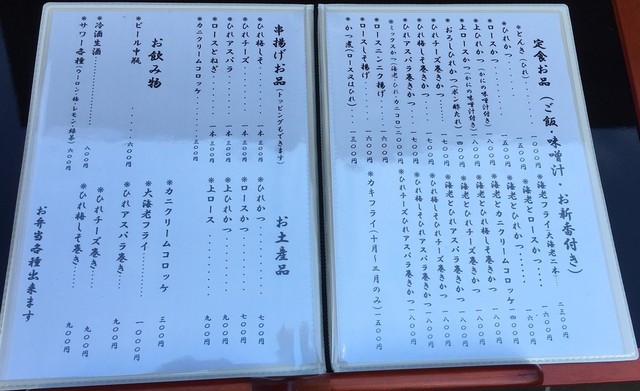 定食お品（ご飯・味噌汁・お新香付き）
＊とんき（ひれ）‥‥‥一〇〇〇円
＊ひれかつ‥‥‥一五〇〇円
＊ロースかつ
＊上ひれかつ（かにの味噌汁付き）
＊上ロースかつ（かにの味噌汁付き）
＊おろしひれかつ（ポン酢たれ）
＊ひれチーズ巻きかつ
＊ひれアスパラ巻きかつ
＊ひれ梅しそ巻きかつ
＊ミックスかつ（海老・ひれ・カニコロ）二〇〇〇円
＊ロースニンニク揚げ
＊ロースしそ揚げ
＊かつ煮（ロース又はひれ）‥一三〇〇円
＊海老フライ（大海老二本）‥‥二三〇〇円
＊海老とロースかつ‥‥一六〇〇円
＊海老とひれかつ
＊海老とカニクリームコロッケ
＊海老とひれ梅しそ巻きかつ
＊海老とひれチーズ巻きかつ
＊海老とひれアスパラ巻きかつ
＊ひれ梅しそとひれチーズ巻きかつ
＊ひれ梅しそとひれアスパラ巻きかつ
＊ひれチーズとひれアスパラ巻きかつ
＊カキフライ（十月〜三月のみ）一五〇〇円
串揚げお品（トッピングもできます）
＊ひれ梅しそ‥一本三〇〇円
＊ひれチーズ‥一本三〇〇円
＊ひれアスパラ 一本三〇〇円
＊ロースとねぎ‥一本三〇〇円
＊カニクリームコロッケ
お飲み物
＊ビール中瓶‥‥‥六〇〇円
＊冷酒生酒‥‥‥八〇〇円
＊サワー各種（ウーロン・梅・レモン・緑茶）六〇〇円
お土産品
＊ひれかつ‥‥‥七〇〇円
＊ロースかつ‥‥‥七〇〇円
＊上ひれかつ‥‥‥九〇〇円
＊上ロース‥‥‥九〇〇円
＊カニクリームコロッケ 三〇〇円
＊大海老フライ‥‥一〇〇〇円
＊ひれアスパラ巻き‥九〇〇円
＊ひれチーズ巻き‥‥九〇〇円
＊ひれ梅しそ巻き‥‥九〇〇円
お弁当各種出来ます